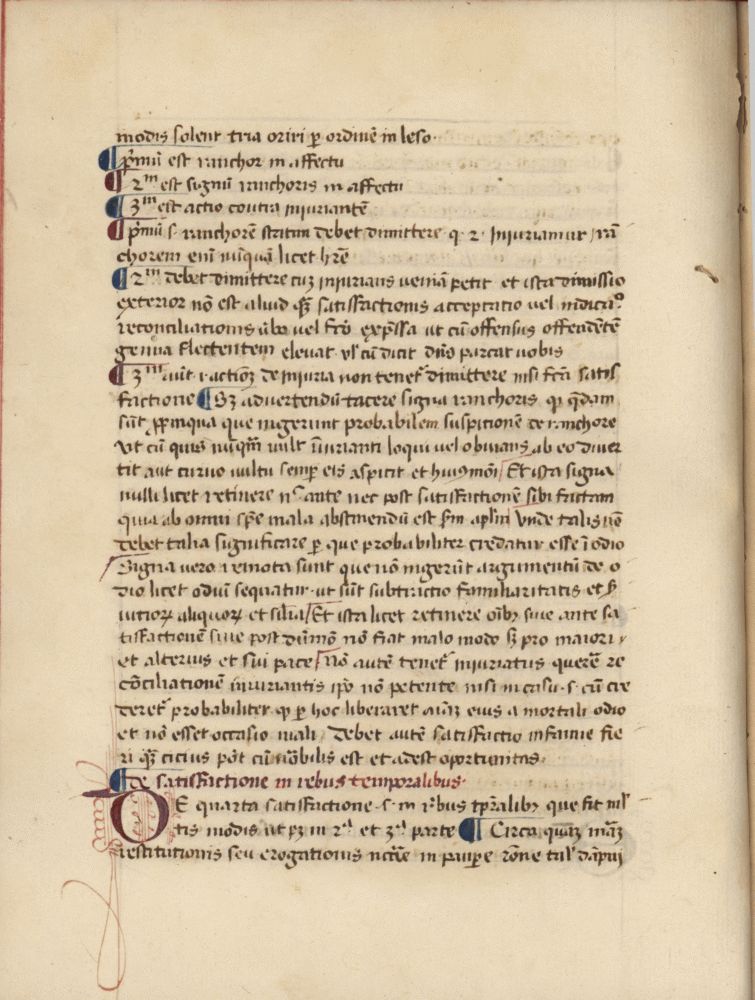 modis solent tria oriri ꝑ ordinē in leso·
¶ p̄mū est ranchor in affectu
¶ 2ᵐ est signū ranchoris in affectu
¶ 3ᵐ est actio contra iniuriantē
¶ p̄mū s· ranchorē statim debet dimittere q· 2· iniuriantur ran
chorem enī nūquā licet h̄re
¶ 2ᵐ debet dimittere cuȝ iniurians ueniā petit et ista dimissio
exterior nō est aliud qȝ satisfactionis acceptatio uel indiciū
reconciliationis ūbo uel fc̄o exp̄ssa ut cū offensus offendētē
genua flectentem eleuat ul̓ cū dicit dn̄s parcat uobis
¶ 3ᵐ aūt· i· actioȝ de iniuria non tenet̓ dimittere nisi fc̄a satis
factione ¶ Sȝ aduertendū tacere signa ranchoris ꝙ q̄dam
sūt ꝓpinqua que ingerunt probabilem suspitionē de ranchore
ut cū quis nūqm̄ uult iniurianti loqui uel obuians ab eo diuer
tit aut curuo uultu semꝑ eū aspicit et huiusmōi Et ista signa
nulli licet retinere n̄ ante nec post satisfactionē sibi factam
quia ab omni spē̄ mala abstinendū est s̄m aplm̄ Unde talis nō
debet talia significare ꝑ que probabiliter credatur esse ī odio
Signa uero remota sunt que nō ingerūt argumentū de o
dio licet odiū sequatur· ut sūt subtractio familiaritatis et s̓
uitioꝝ aliquoꝝ et silia Et ista licet retinere oībȝ siue ante sa
tisfactionē siue post dūmō nō fiat malo modo sȝ pro maiori
et alterius et sui pace Nō autē tenet̓ iniuriatus querē re
cōciliationē iniuriantis ip̄o nō petente nisi in casu· s· cū cre
deret̓ probabiliter ꝙ ꝑ hoc liberaret aīaȝ eius a mortali odio
et nō esset occasio mali. Debet autē satisfactio infamie fie
ri qȝ cicius pōt cū nōbilis est et adest oportunitas·
¶ de satisfactione in rebus temporalibus·
DE quarta satisfactione· s· in rebus tp̄ralibȝ que fit ml̓
tis modis ut pȝ in 2ᵃ et 3ᵃ parte ¶ Circa quaȝ māȝ
restitutionis seu erogationis nc̄c̄e in paupe rōne tal̓